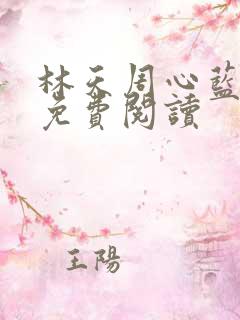 林天周心藍
免費閱讀
王陽